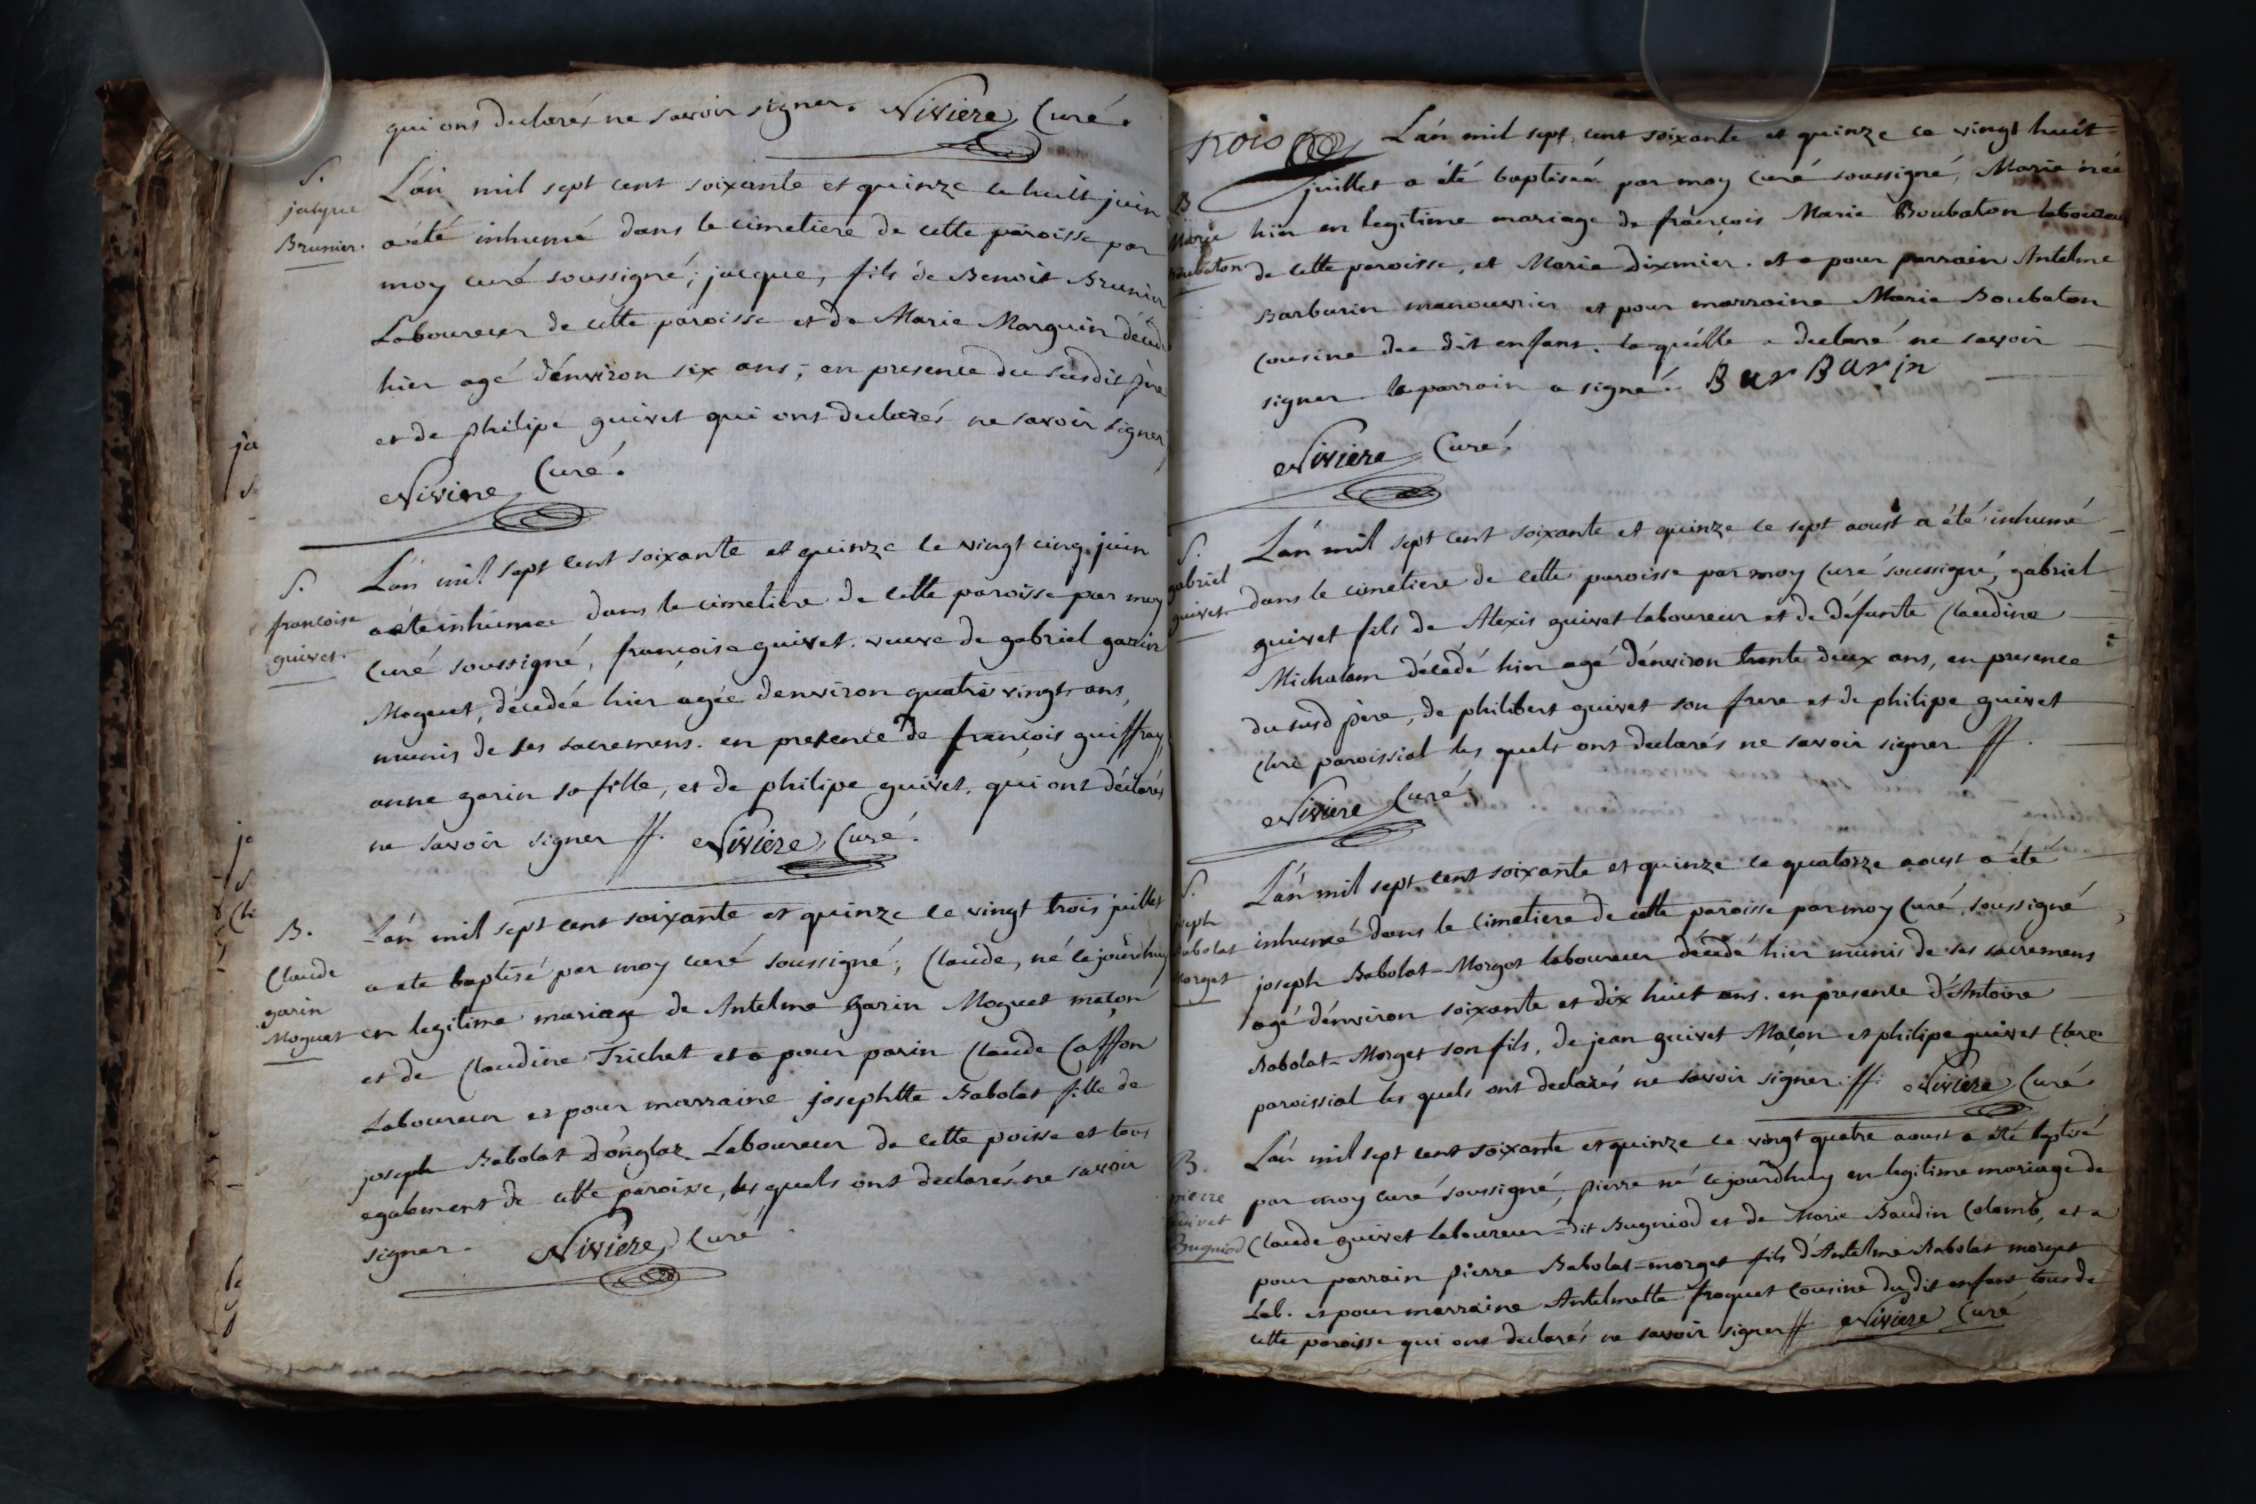 qui ont declarés ne savoir signer. Nivière Curé.
S.
jacque
Brunier.
L'án mil sept cent soixante et quinze le huit juin
a été inhumé dans le cimetiere de cette paroisse par
moy curé soussigné; jacque, fils de Benoit Brunier
Laboureur de cette paroisse et de Marie Marguin décédé
hier agé d'énviron six ans; en presence du susdit père
et de philipe guivet qui ont declarés ne savoir signer
Nivière Curé.
S.
françoise
guivet.
L'án mil sept cent soixante et quinze le vingt cinq juin
a été inhumée dans le cimetiere de cette paroisse par moy
Curé soussigné, françoise guivet. veuve de gabriel garin
Moguet, décedée hier agée denviron quatre vingts ans,
munis de ses sacremens. en presence de françois guiffray
anne garin sa fille, et de philipe guivet. qui ont déclarés
ne savoir signer //. Nivière Curé.
B.
Claude
garin
Moguet
L'án mil sept cent soixante et quinze le vingt trois juillet
a été baptisé par moy curé soussigné, Claude, né cejourdhuy
en legitime mariage de Antelme Garin Moguet maçon
et de Claudine Trichet et a pour parin Claude Caffon
Laboureur et pour marraine josephtte Babolat fille de
joseph Babolat D'onglaz Laboureur de cette poisse et tous
egalement de cette paroisse, les quels ont declarés ne savoir
signer. Nivière Curé.
trois
L'án mil sept cent soixante et quinze le vingt huit
B
Marie
Boubaton
juillet a été baptiseé par moy curé soussigné, Marie née
hier en legitime mariage de françois Marie Boubaton laboureur
de cette paroisse, et Marie Dixmier. et a pour parrain Antelme
Barbarin manouvrier et pour marraine Marie Boubaton
Cousine du dit enfant. la quélle a declaré ne savoir
signer le parrain a signé. BurBarin
Nivière Curé.
S.
gabriel
guivet
L'án mil sept cent soixante et quinze le sept aoust a été inhumé
dans le cimetiere de cette paroisse par moy Curé soussigné, gabriel
guivet fils de Alexis guivet laboureur et de défunte Claudine
Michalam décédé hier agé d'énviron trente deux ans, en presence
du susd père, de philibert guivet son frere et de philipe guivet
Clerc paroissial les quels ont declarés ne savoir signer //.
Nivière Curé
S.
joseph
Babolat
Morget
L'án mil sept cent soixante et quinze le quatorze aoust a été
inhumé dans le Cimetiere de cette paroisse par moy Curé soussigné
joseph Babolat-Morget laboureur décedé hier munis de ses sacremens
agé d'énviron soixante et dix huit ans. en presence d'Antoine
Babolat-Morget son fils, de jean guivet Maçon et philipe guivet Clerc
paroissial les quels ont declarés ne savoir signer //. Nivière Curé.
B.
pierre
guivet
Bugniod
L'án mil sept cent soixante et quinze le vingt quatre aoust a été baptisé
par moy curé soussigné, pierre né cejourdhuy en legitime mariage de
Claude guivet laboureur-dit Bugniod et de Marie Baudin Colomb, et a
pour parrain pierre Babolat-morget fils d'Antelme Babolat morget
Lab. et pour marraine Antelmette froquet Cousine du dit enfant tous de
cette paroisse qui ont declarés ne savoir signer // Nivière Curé